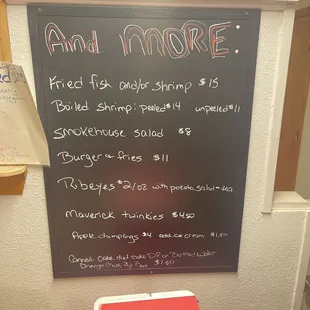 And MORE:
Fried fish and/or shrimp $15
Boiled shrimp: peeled $14 unpeeled $11
Smokehouse salad $8
Burger & fries $11
Ribeyes $2/oz with potato, salad + tea
Maverick twinkies $4.50
Apple dumplings $4 add ice cream $1.50
Canned: Coke, diet coke, DP or Bottled Water
Orange